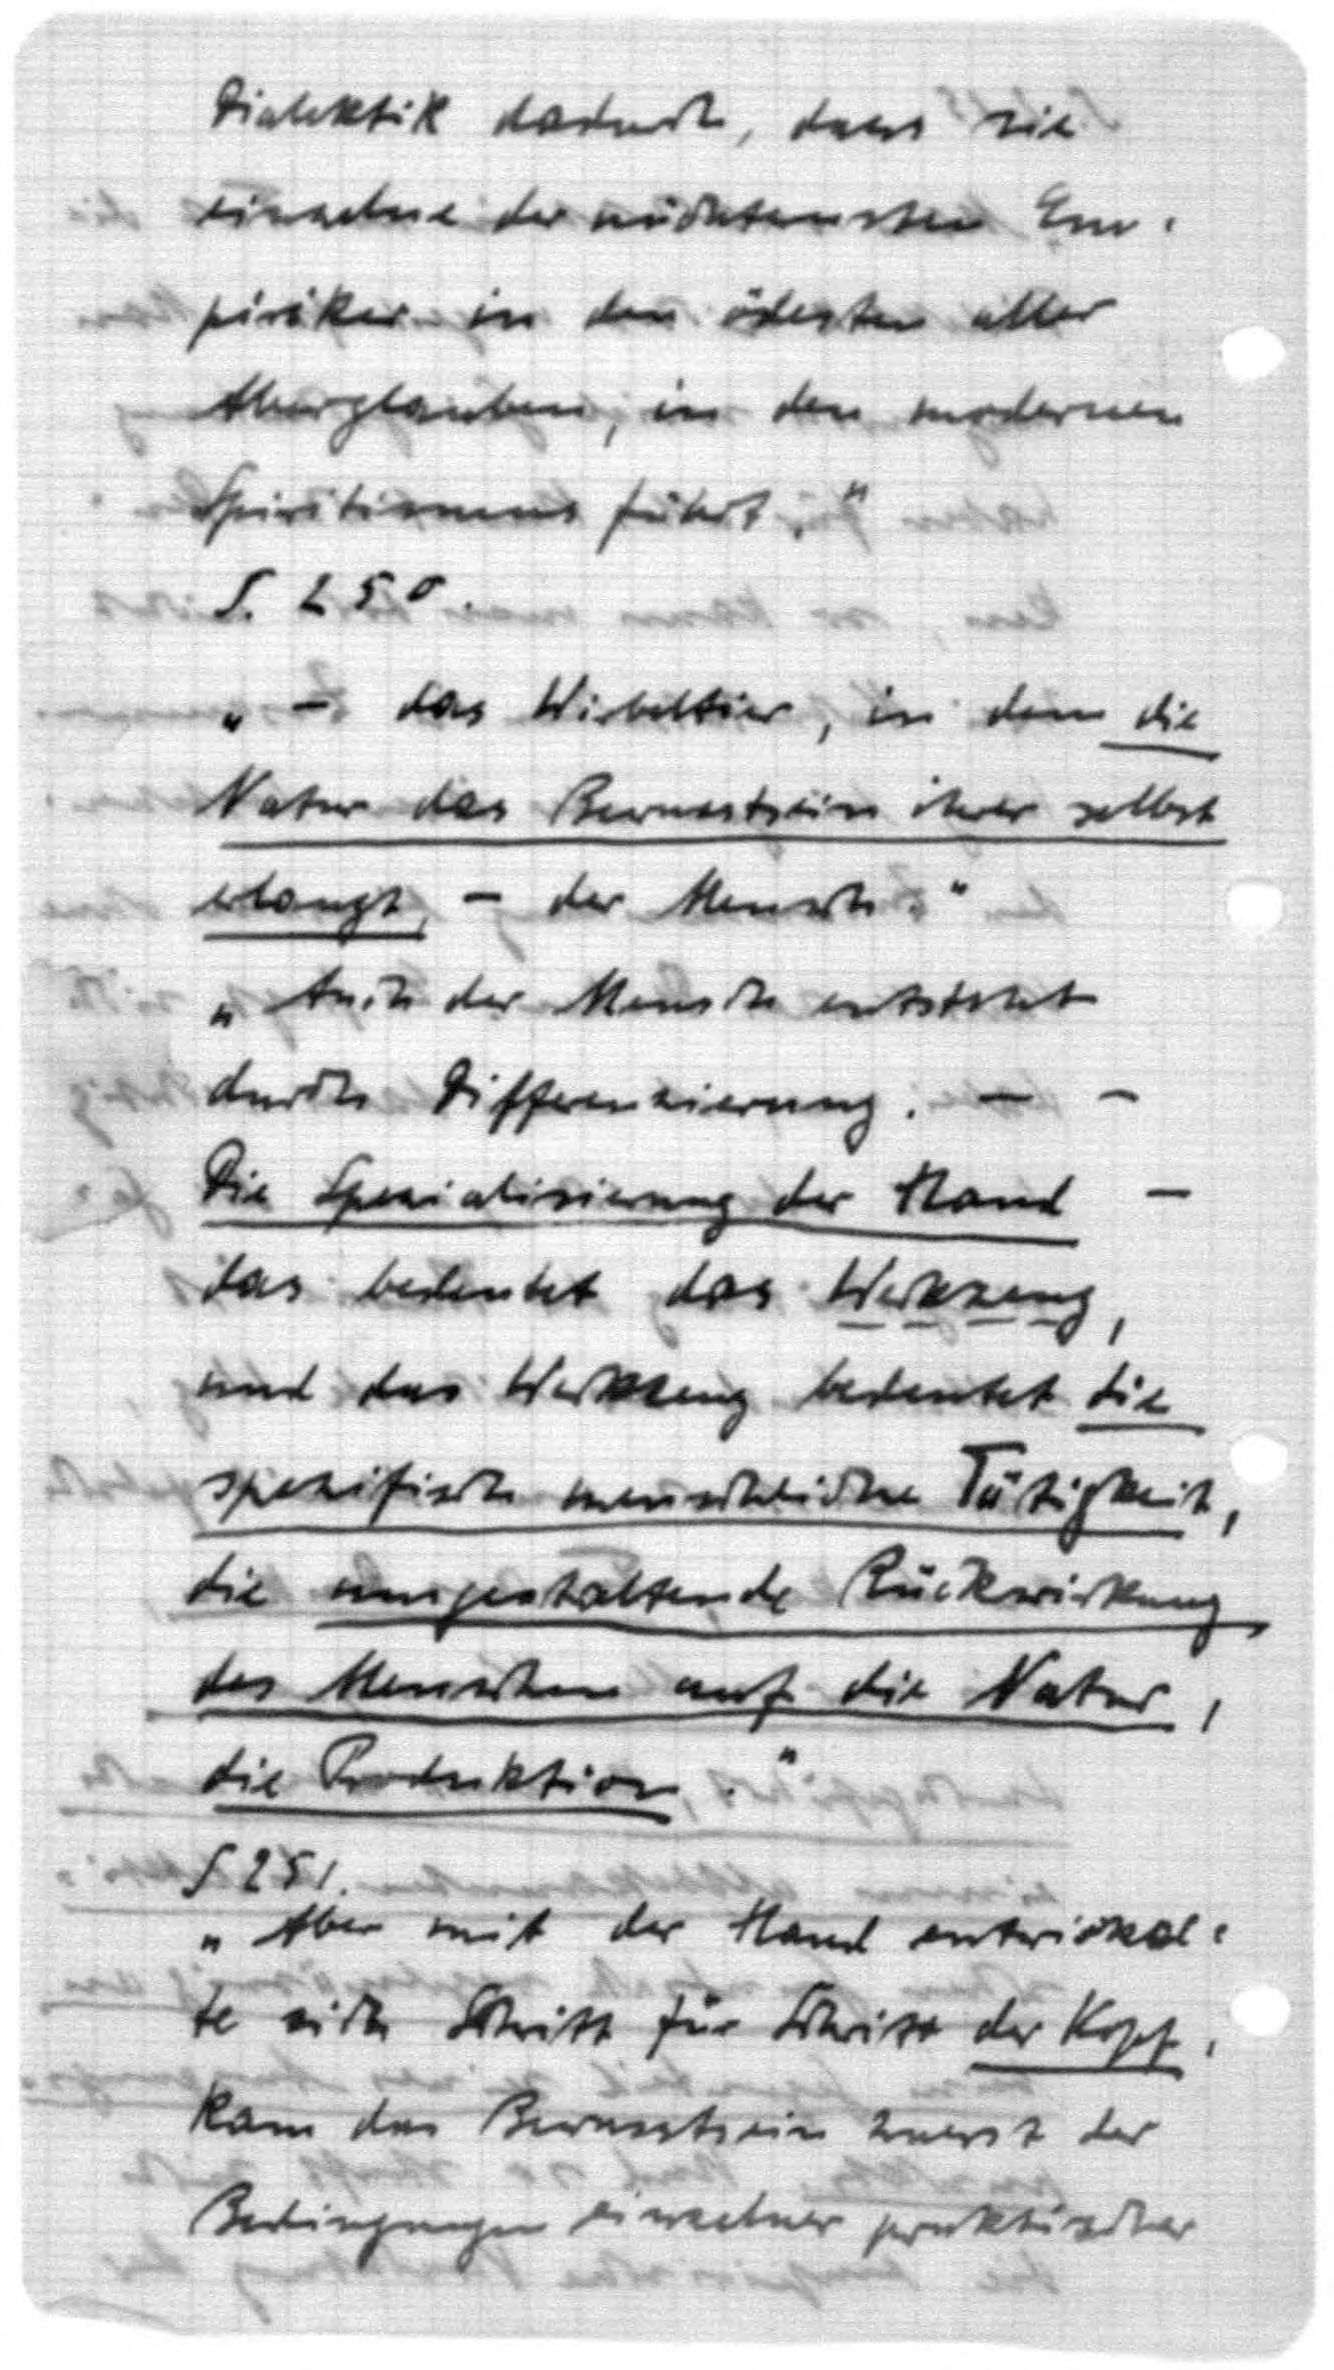 Dialektik dadurch, dass sie
einzelne der nüchternsten Em-
piriker in den ödesten aller
Aberglauben, in den modernen
Spiritismus führt."
S. 250.
„ – das Wirbeltier, in dem die
Natur das Bewusstsein ihrer selbst
erlangt, – der Mensch."
„Auch der Mensch entsteht
durch Differenzierung. – –
Die Spezialisierung der Hand –
das bedeutet das Werkzeug,
und das Werkzeug bedeutet die
spezifisch menschliche Tätigkeit,
die umgestaltende Rückwirkung
des Menschen auf die Natur,
die Produktion."
S 251.
„Aber mit der Hand entwickel-
te sich Schritt für Schritt der Kopf,
kam das Bewusstsein zuerst der
Bedingungen einzelner praktischer